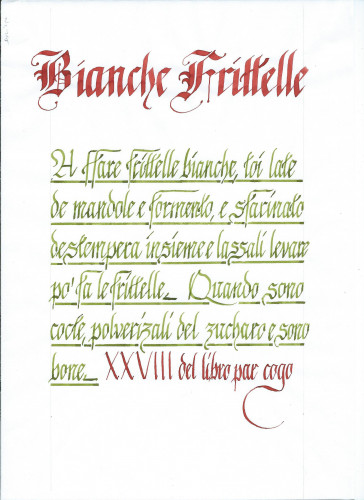 Bianche Frittelle
A ffare frittelle bianche, toi late
de mandole e formento, e sfarinato
destempera insieme e lassali levare
po' fa le frittelle_ Quando sono
cocte, polverizali del zucharo e sono
bone._ XXVIII del libro par cogo